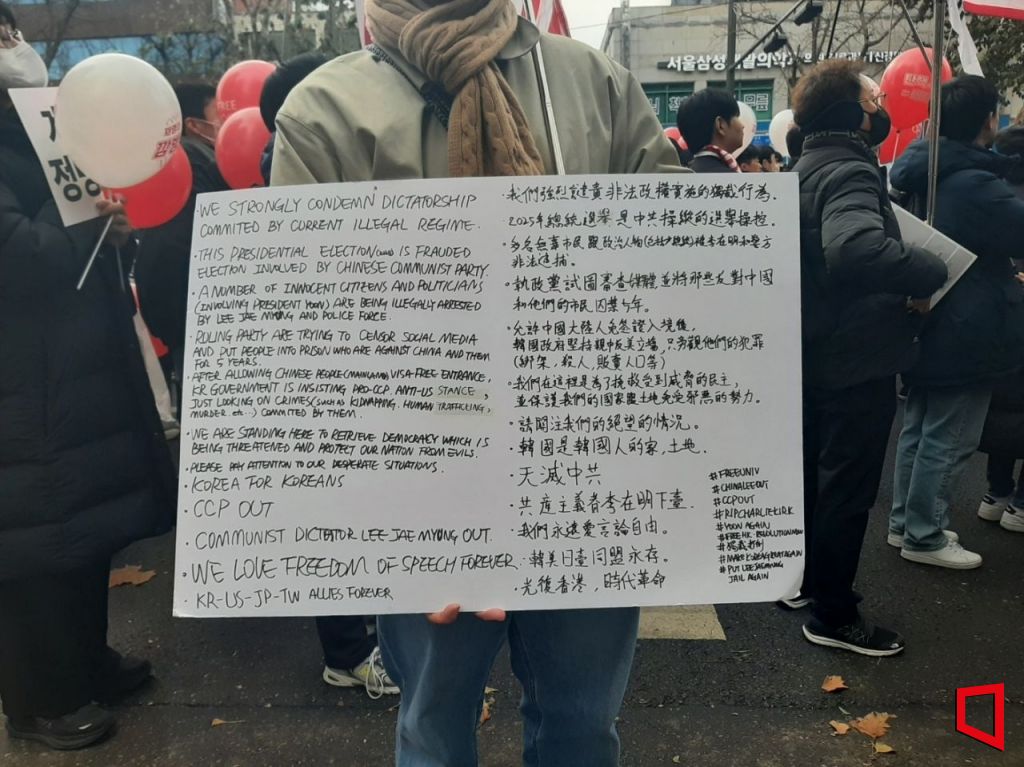 서울삼성
FREE
· WE STRONGLY CONDEMN DICTATORSHIP
COMMITED BY CURRENT ILLEGAL REGIME.
· THIS PRESIDENTIAL ELECTION IS FRAUDED
ELECTION INVOLVED BY CHINESE COMMUNIST PARTY.
· A NUMBER OF INNOCENT CITIZENS AND POLITICIANS
(INVOLVING PRESIDENT YOON) ARE BEING ILLEGALLY ARRESTED
BY LEE JAE MYUNG AND POLICE FORCE.
· RULING PARTY ARE TRYING TO CENSOR SOCIAL MEDIA
AND PUT PEOPLE INTO PRISON WHO ARE AGAINST CHINA AND THEM
FOR 5 YEARS.
· AFTER ALLOWING CHINESE PEOPLE(MAINLAND) VISA-FREE ENTRANCE,
KR GOVERNMENT IS INSISTING PRO-CCP. ANTI-US STANCE,
JUST LOOKING ON CRIMES(SUCH AS KIDNAPPING. HUMAN TRAFFICKING,
MURDER. etc...) COMMITED BY THEM.
· WE ARE STANDING HERE TO RETRIEVE DEMOCRACY WHICH IS
BEING THREATENED AND PROTECT OUR NATION FROM EVILS.
· PLEASE PAY ATTENTION TO OUR DESPERATE SITUATIONS.
· KOREA FOR KOREANS
· CCP OUT
· COMMUNIST DICTATOR LEE JAE MYUNG OUT.
· WE LOVE FREEDOM OF SPEECH FOREVER.
· KR-US-JP-TW ALLIES FOREVER
· 我們強烈譴責非法政權實施的獨裁行為.
2025年總統選舉是中共操縱的選舉操控.
· 多名無辜市民跟政治人物被李在明和警方
非法逮捕。
· 執政黨試圖審查媒體並將那些反對中國
和他們的市民囚禁5年。
· 允許中國大陸人免簽證入境後,
韓國政府堅持親中反美立場,只旁觀他們的犯罪
(綁架,殺人,販賣人口等)
· 我們在這裡是為了挽救受到威脅的民主,
並保護我們的國家疆土地免受邪惡的努力。
· 請關注我們的絕望的情況。
· 韓國是韓國人的家,土地.
· 天滅中共
· 共產主義者李在明下臺.
· 我們永遠愛言論自由.
· 韓美日臺同盟永存.
· 光復香港,時代革命
#FREEUNIV
#CHINALEEOUT
#CCPOUT
#RIPCHARLIEKIRK
#YOON AGAIN
#FREEHK・REVOLUTIONNOW
#獨裁打倒
#MAKEKOREAGREATAGAIN
#PUT LEEJAEMYUNG
JAIL AGAIN